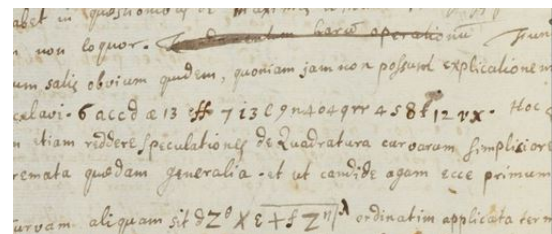 abet in quæstionibus de Maximis
n non loquor. Fundamentum harũ operationũ
um satis obvium quidem, quoniam jam non possum explicationem
celavi. 6accdæ13eff7i3l9n4o4qrr4s8t12vx. Hoc
n etiam reddere speculationes de Quadratura curvarum simpliciore
remata quædam generalia. et ut candide agam ecce primum
urvam aliquam sit dZ^θ × e + fZ^η|^λ ordinatim applicata term